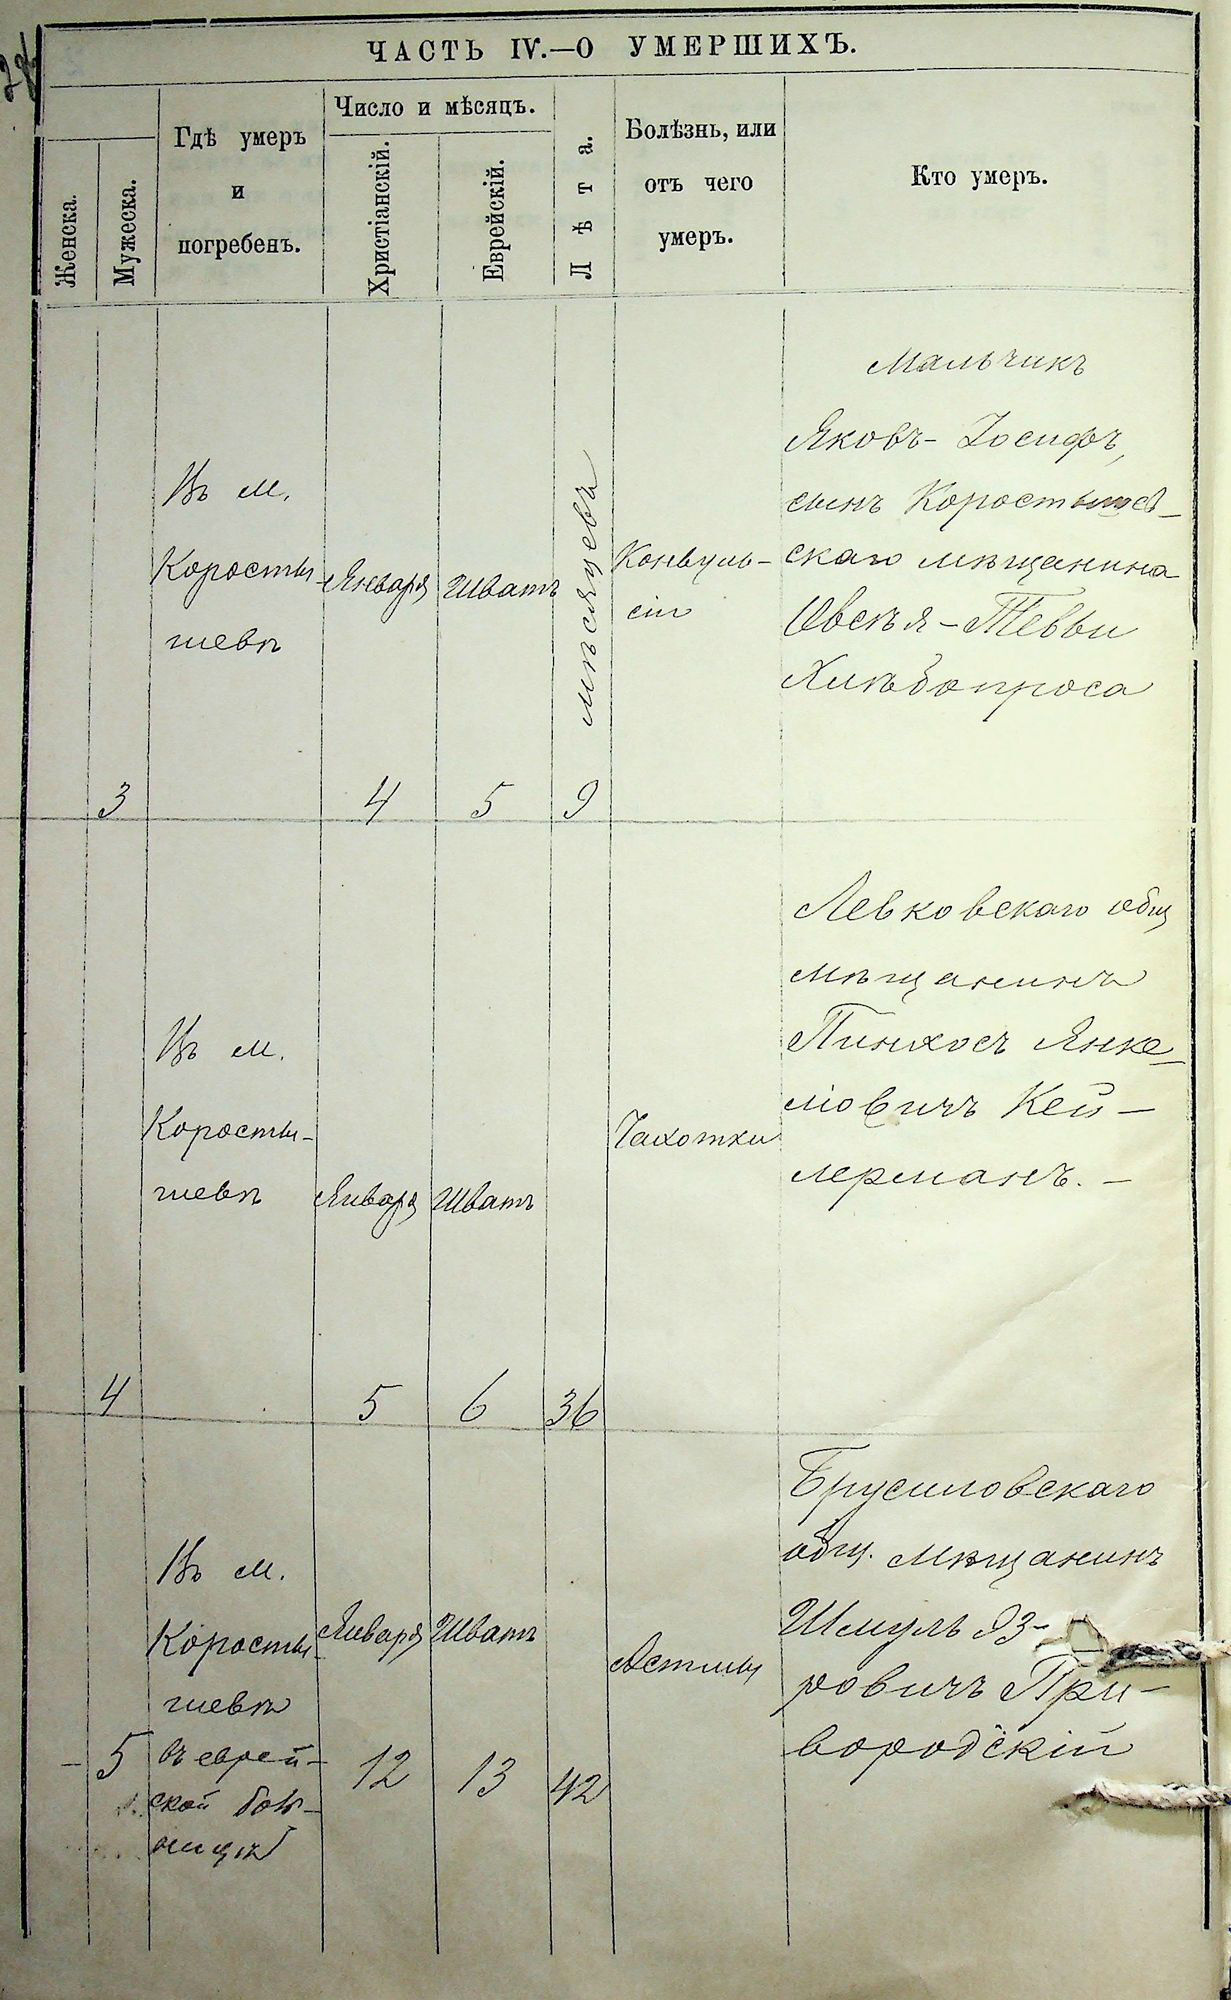 ЧАСТЬ IV.—О УМЕРШИХЪ.
Женска.
Мужеска.
Гдѣ умеръ
и
погребенъ.
Число и мѣсяцъ.
Христіанскій.
Еврейскій.
Лѣта.
Болѣзнь, или
отъ чего
умеръ.
Кто умеръ.
3
Въ м.
Коросты-
шевѣ
Января
4
Шватъ
5
мѣсяцевъ
9
Конвуль-
сіи
Мальчикъ
Яковъ-Іосифъ,
сынъ Коростышев-
скаго мѣщанина
Овсѣя-Тевьи
Хлѣбопроса
4
Въ м.
Коросты-
шевѣ
Января
5
Шватъ
6
36
Чахотки
Левковскаго общ
мѣщанинъ
Пинхосъ Янке-
ліовичъ Кей-
лерманъ.-
5
Въ м.
Коросты-
шевѣ
въ еврей-
ской боль-
ницѣ
Января
12
Шватъ
13
42
Астмы
Брусиловскаго
общ. мѣщанинъ
Шмуль
ровичъ При-
вородскій